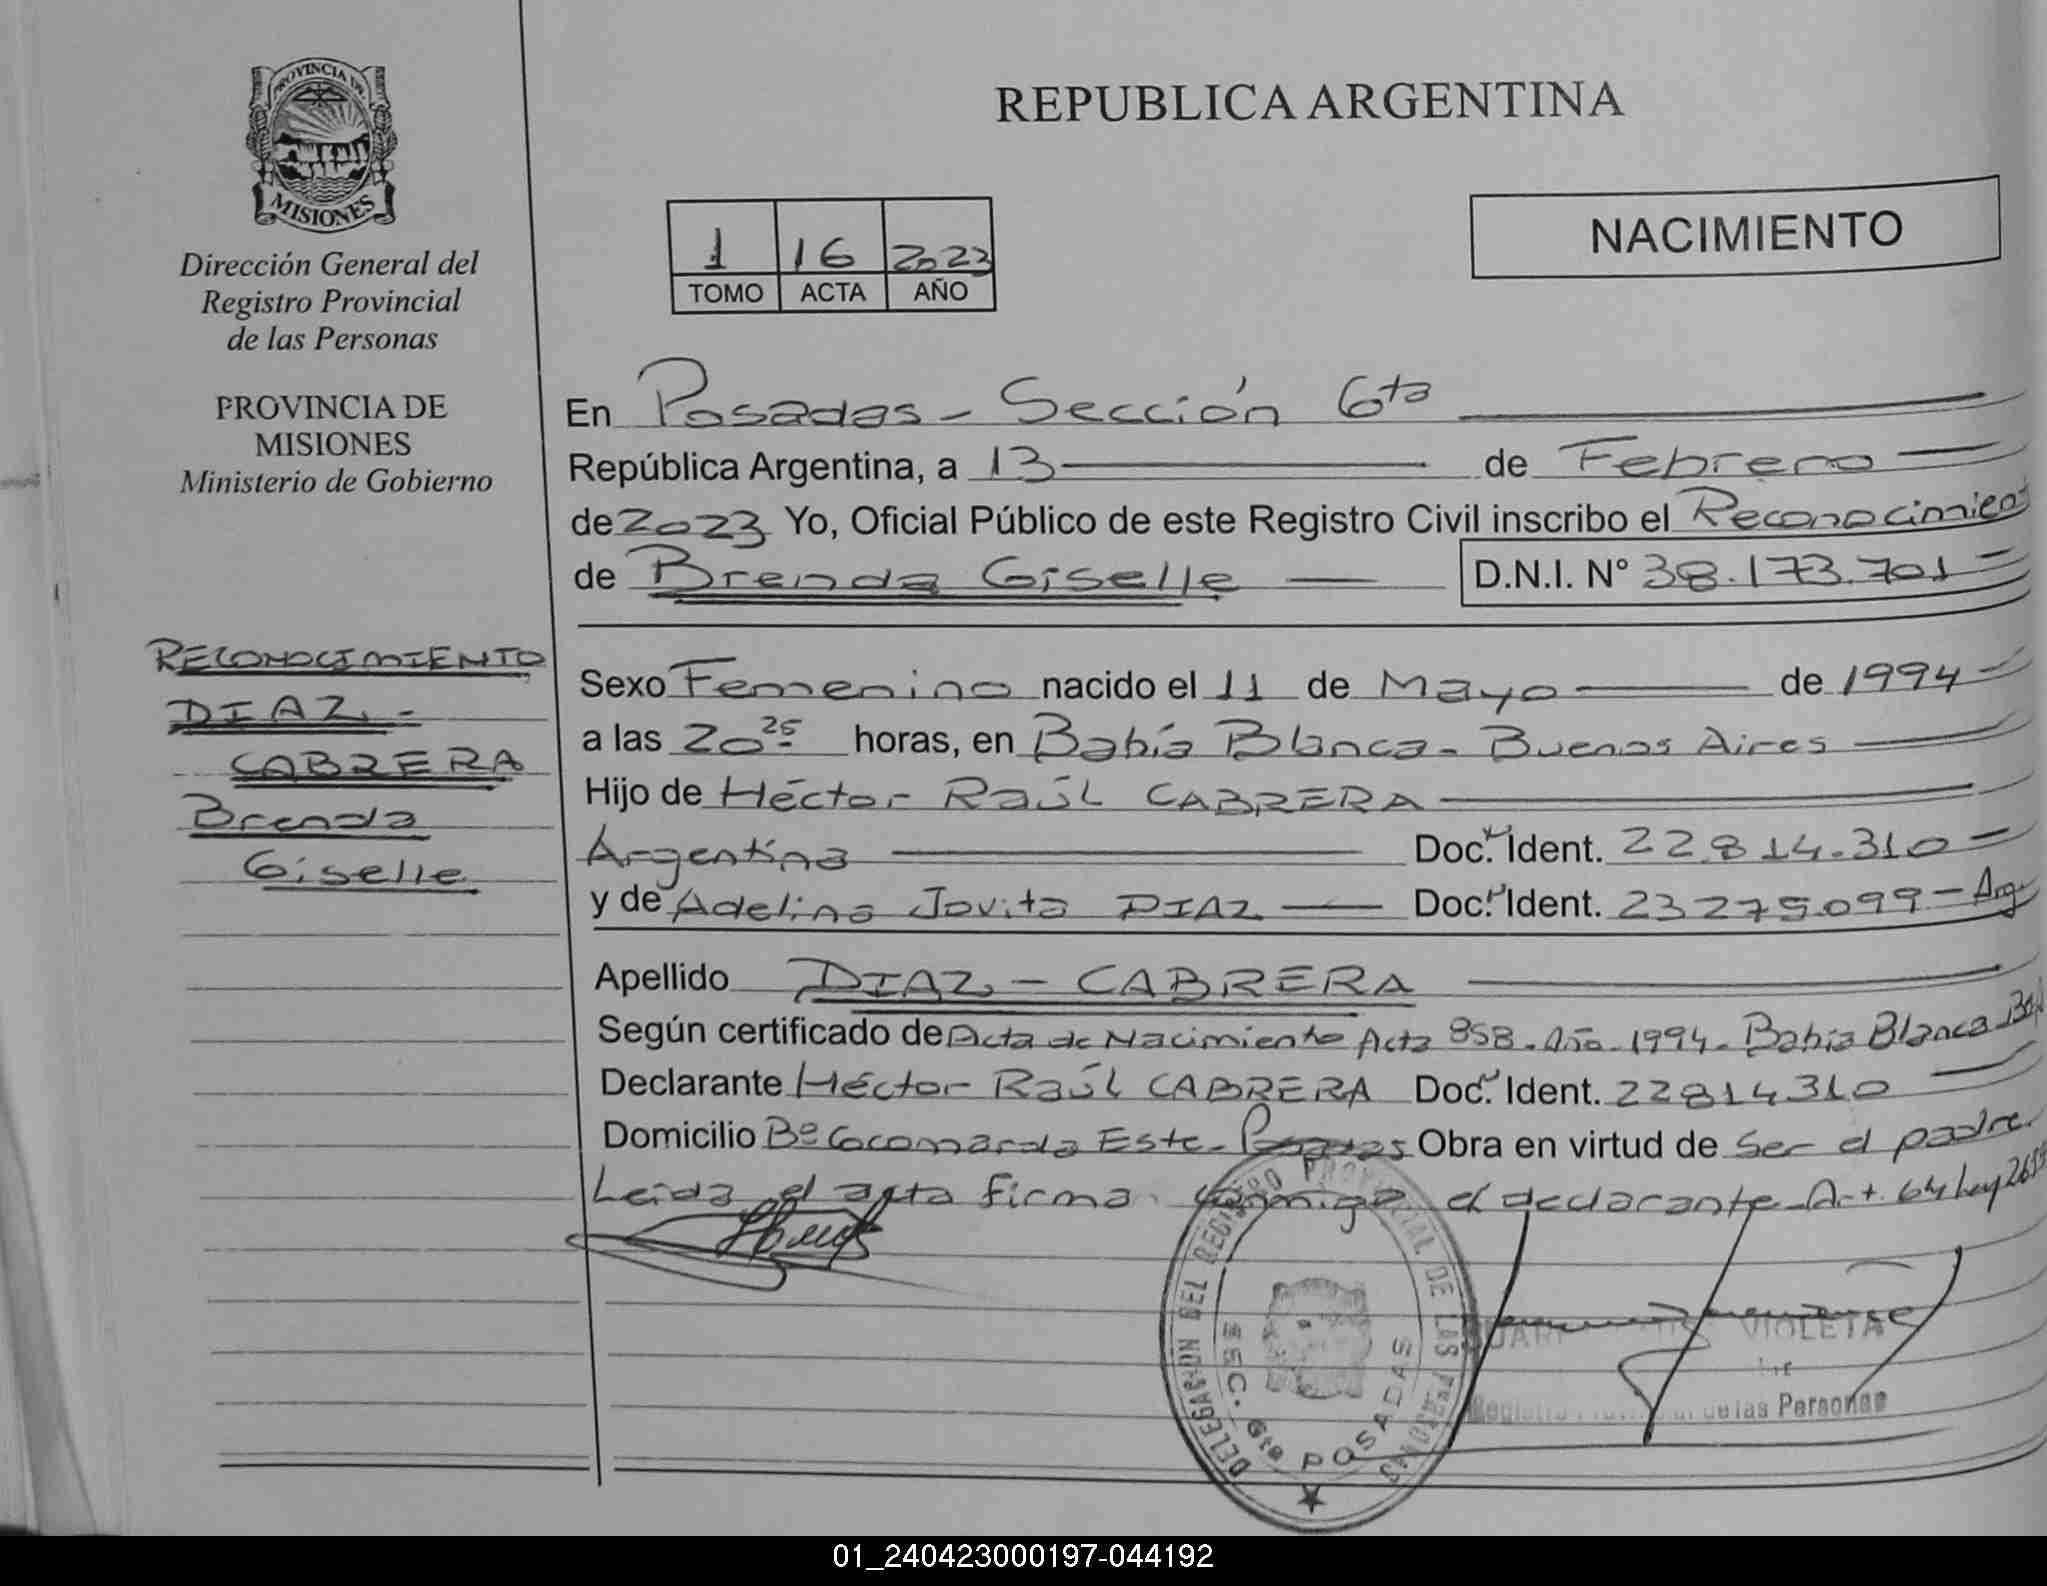 PROVINCIA DE
MISIONES
Dirección General del
Registro Provincial
de las Personas
PROVINCIA DE
MISIONES
Ministerio de Gobierno
RECONOCIMIENTO
DIAZ -
CABRERA
Brenda
Giselle
REPUBLICA ARGENTINA
1 16 2023
TOMO ACTA AÑO
NACIMIENTO
En Posadas - Sección 6ta
República Argentina, a 13 de Febrero
de 2023 Yo, Oficial Público de este Registro Civil inscribo el Reconocimient
de Brenda Giselle D.N.I. N° 38.173.701
Sexo Femenino nacido el 11 de Mayo de 1994
a las 20 25 horas, en Bahía Blanca - Buenos Aires
Hijo de Héctor Raúl CABRERA
Argentina Doc. Ident. 22.814.310
y de Adelina Jovita DIAZ Doc. Ident. 23275099 - Arg
Apellido DIAZ - CABRERA
Según certificado de Acta de Nacimiento Acta 858 - Año - 1994 - Bahía Blanca
Declarante Héctor Raúl CABRERA Doc. Ident. 22814310
Domicilio Bº Cocomarola Este - Posadas Obra en virtud de Ser el padre.
Leida el acta firma conmigo el declarante - Art. 64 Ley
DELEGACION DEL REGISTRO PROVINCIAL DE LAS PERSONAS
SEC. 6ta POSADAS
VIOLETA
de las Personas
01_240423000197-044192